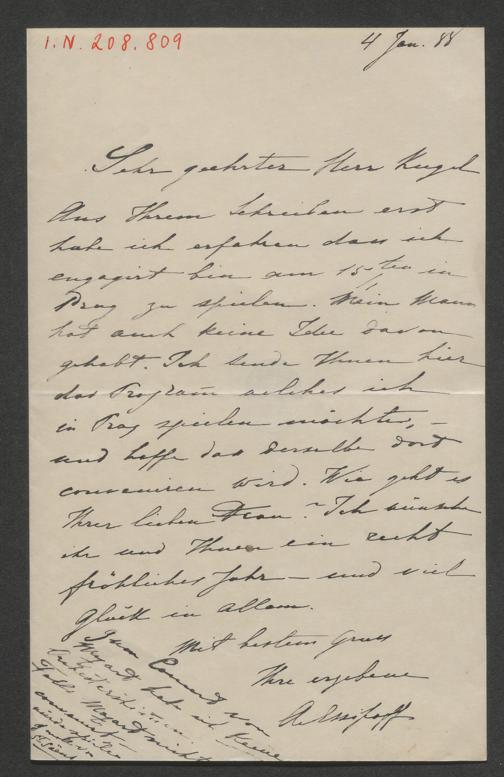 I.N. 208.809
4 Jan. 88
Sehr geehrter Herr Kugel
Aus Ihrem Schreiben erst
habe ich erfahren dass ich
engagirt bin am 15ten in
Prag zu spielen. Mein Mann
hat auch keine Idee davon
gehabt. Ich sende Ihnen hier
das Program̄ welches ich
in Prag spielen möchte, –
und hoffe das derselbe dort
conveniren wird. Wie geht es
Ihrer lieben Frau? Ich wünsche
ihr und Ihnen ein recht
fröhliches Jahr – und viel
Glück in allem.
Mit bestem Gruss
Ihre ergebene
A. Essipoff
Zum Concert von
Mozart habe ich keine
Falls Mozart nicht
convenirt